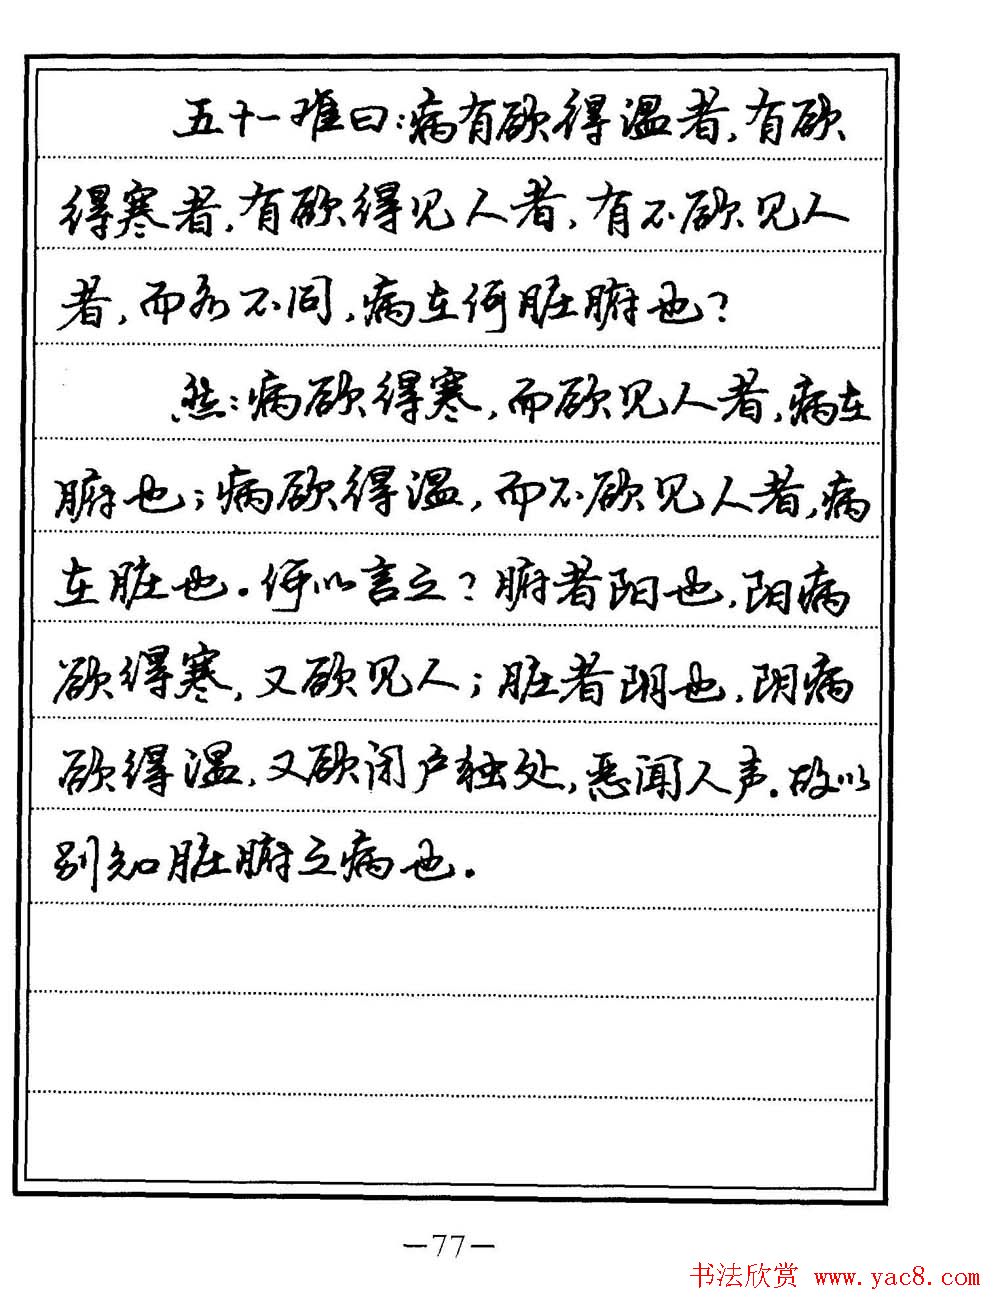 五十一难曰:病有欲得温者,有欲
得寒者,有欲得见人者,有不欲见人
者,而各不同,病在何脏腑也?
然:病欲得寒,而欲见人者,病在
腑也;病欲得温,而不欲见人者,病
在脏也.何以言之?腑者阳也,阳病
欲得寒,又欲见人;脏者阴也,阴病
欲得温,又欲闭户独处,恶闻人声.故以
别知脏腑之病也.
—77—
书法欣赏 www.yac8.com